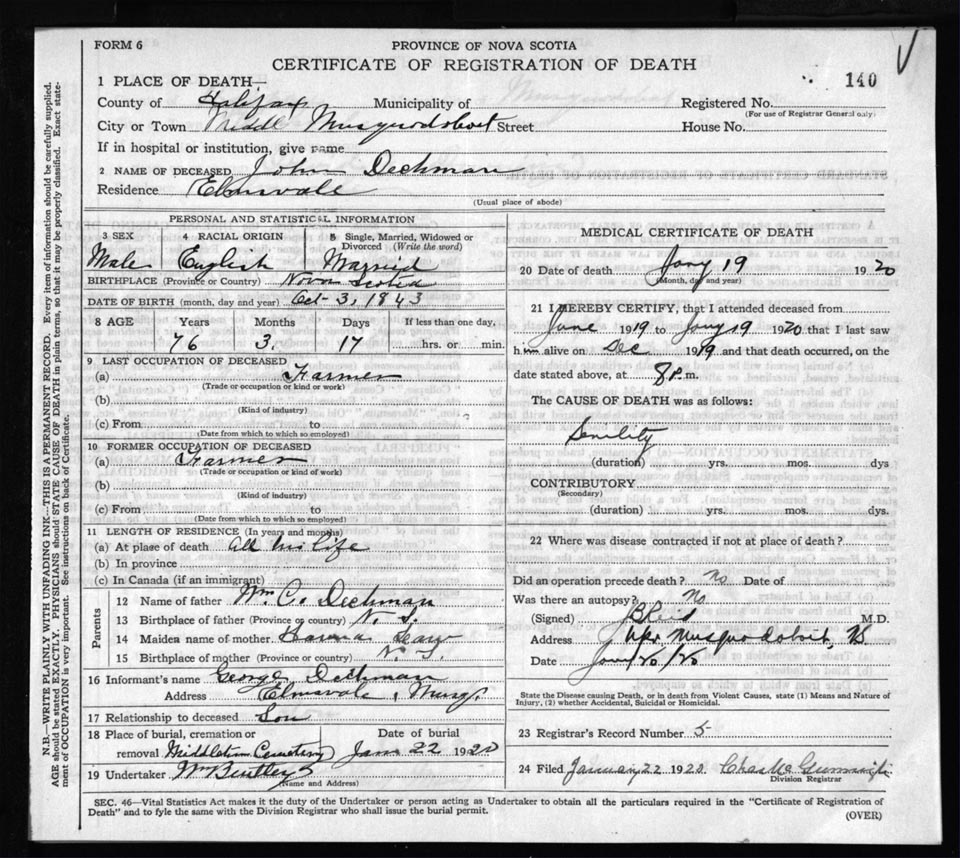 FORM 6
PROVINCE OF NOVA SCOTIA
CERTIFICATE OF REGISTRATION OF DEATH
140
1 PLACE OF DEATH—
County of Halifax Municipality of Registered No.
(For use of Registrar General only)
City or Town Middle Musquodoboit Street House No.
If in hospital or institution, give name
2 NAME OF DECEASED John Dechman
Residence Elmsvale
(Usual place of abode)
PERSONAL AND STATISTICAL INFORMATION
3 SEX 4 RACIAL ORIGIN 5 Single, Married, Widowed or Divorced (Write the word)
Male English Married
BIRTHPLACE (Province or Country) Nova Scotia
DATE OF BIRTH (month, day and year) Oct-3, 1843
8 AGE Years Months Days If less than one day,
76 3. 17 hrs. or min.
9 LAST OCCUPATION OF DECEASED
(a) Farmer
(Trade or occupation or kind of work)
(b)
(Kind of industry)
(c) From to
(Date from which to which so employed)
10 FORMER OCCUPATION OF DECEASED
(a) Farmer
(Trade or occupation or kind of work)
(b)
(Kind of industry)
(c) From to
(Date from which to which so employed)
11 LENGTH OF RESIDENCE (In years and months)
(a) At place of death all his life
(b) In province
(c) In Canada (if an immigrant)
Parents
12 Name of father Wm. C. Dechman
13 Birthplace of father (Province or country) N. S.
14 Maiden name of mother
15 Birthplace of mother (Province or country) N. S.
16 Informant's name George Dechman
Address Elmsvale, Musq.
17 Relationship to deceased Son
18 Place of burial, cremation or removal Date of burial
Middleton Cemetery Jan 22 1920
19 Undertaker Wm Bentley
(Name and Address)
MEDICAL CERTIFICATE OF DEATH
20 Date of death Jany 19 1920
(Month, day and year)
21 I HEREBY CERTIFY, that I attended deceased from
June 1919 to Jany 19 1920 that I last saw
him alive on Dec 1919 and that death occurred, on the
date stated above, at 8 p.m.
The CAUSE OF DEATH was as follows:
Senility
(duration) yrs. mos. dys
CONTRIBUTORY
(Secondary)
(duration) yrs. mos. dys.
22 Where was disease contracted if not at place of death?
Did an operation precede death? No Date of
Was there an autopsy? No
(Signed) Reid M.D.
Address Musquodoboit, NS
Date Jany 20/20
State the Disease causing Death, or in death from Violent Causes, state (1) Means and Nature of
Injury, (2) whether Accidental, Suicidal or Homicidal.
23 Registrar's Record Number 5
24 Filed January 22 1920
Division Registrar
SEC. 46—Vital Statistics Act makes it the duty of the Undertaker or person acting as Undertaker to obtain all the particulars required in the "Certificate of Registration of
Death" and to fyle the same with the Division Registrar who shall issue the burial permit.
(OVER)
N.B.—WRITE PLAINLY WITH UNFADING INK—THIS IS A PERMANENT RECORD. Every item of information should be carefully supplied.
AGE should be stated EXACTLY. PHYSICIANS should STATE CAUSE OF DEATH in plain terms, so that it may be properly classified. Exact state-
ment of OCCUPATION is very important. See instructions on back of Certificate.